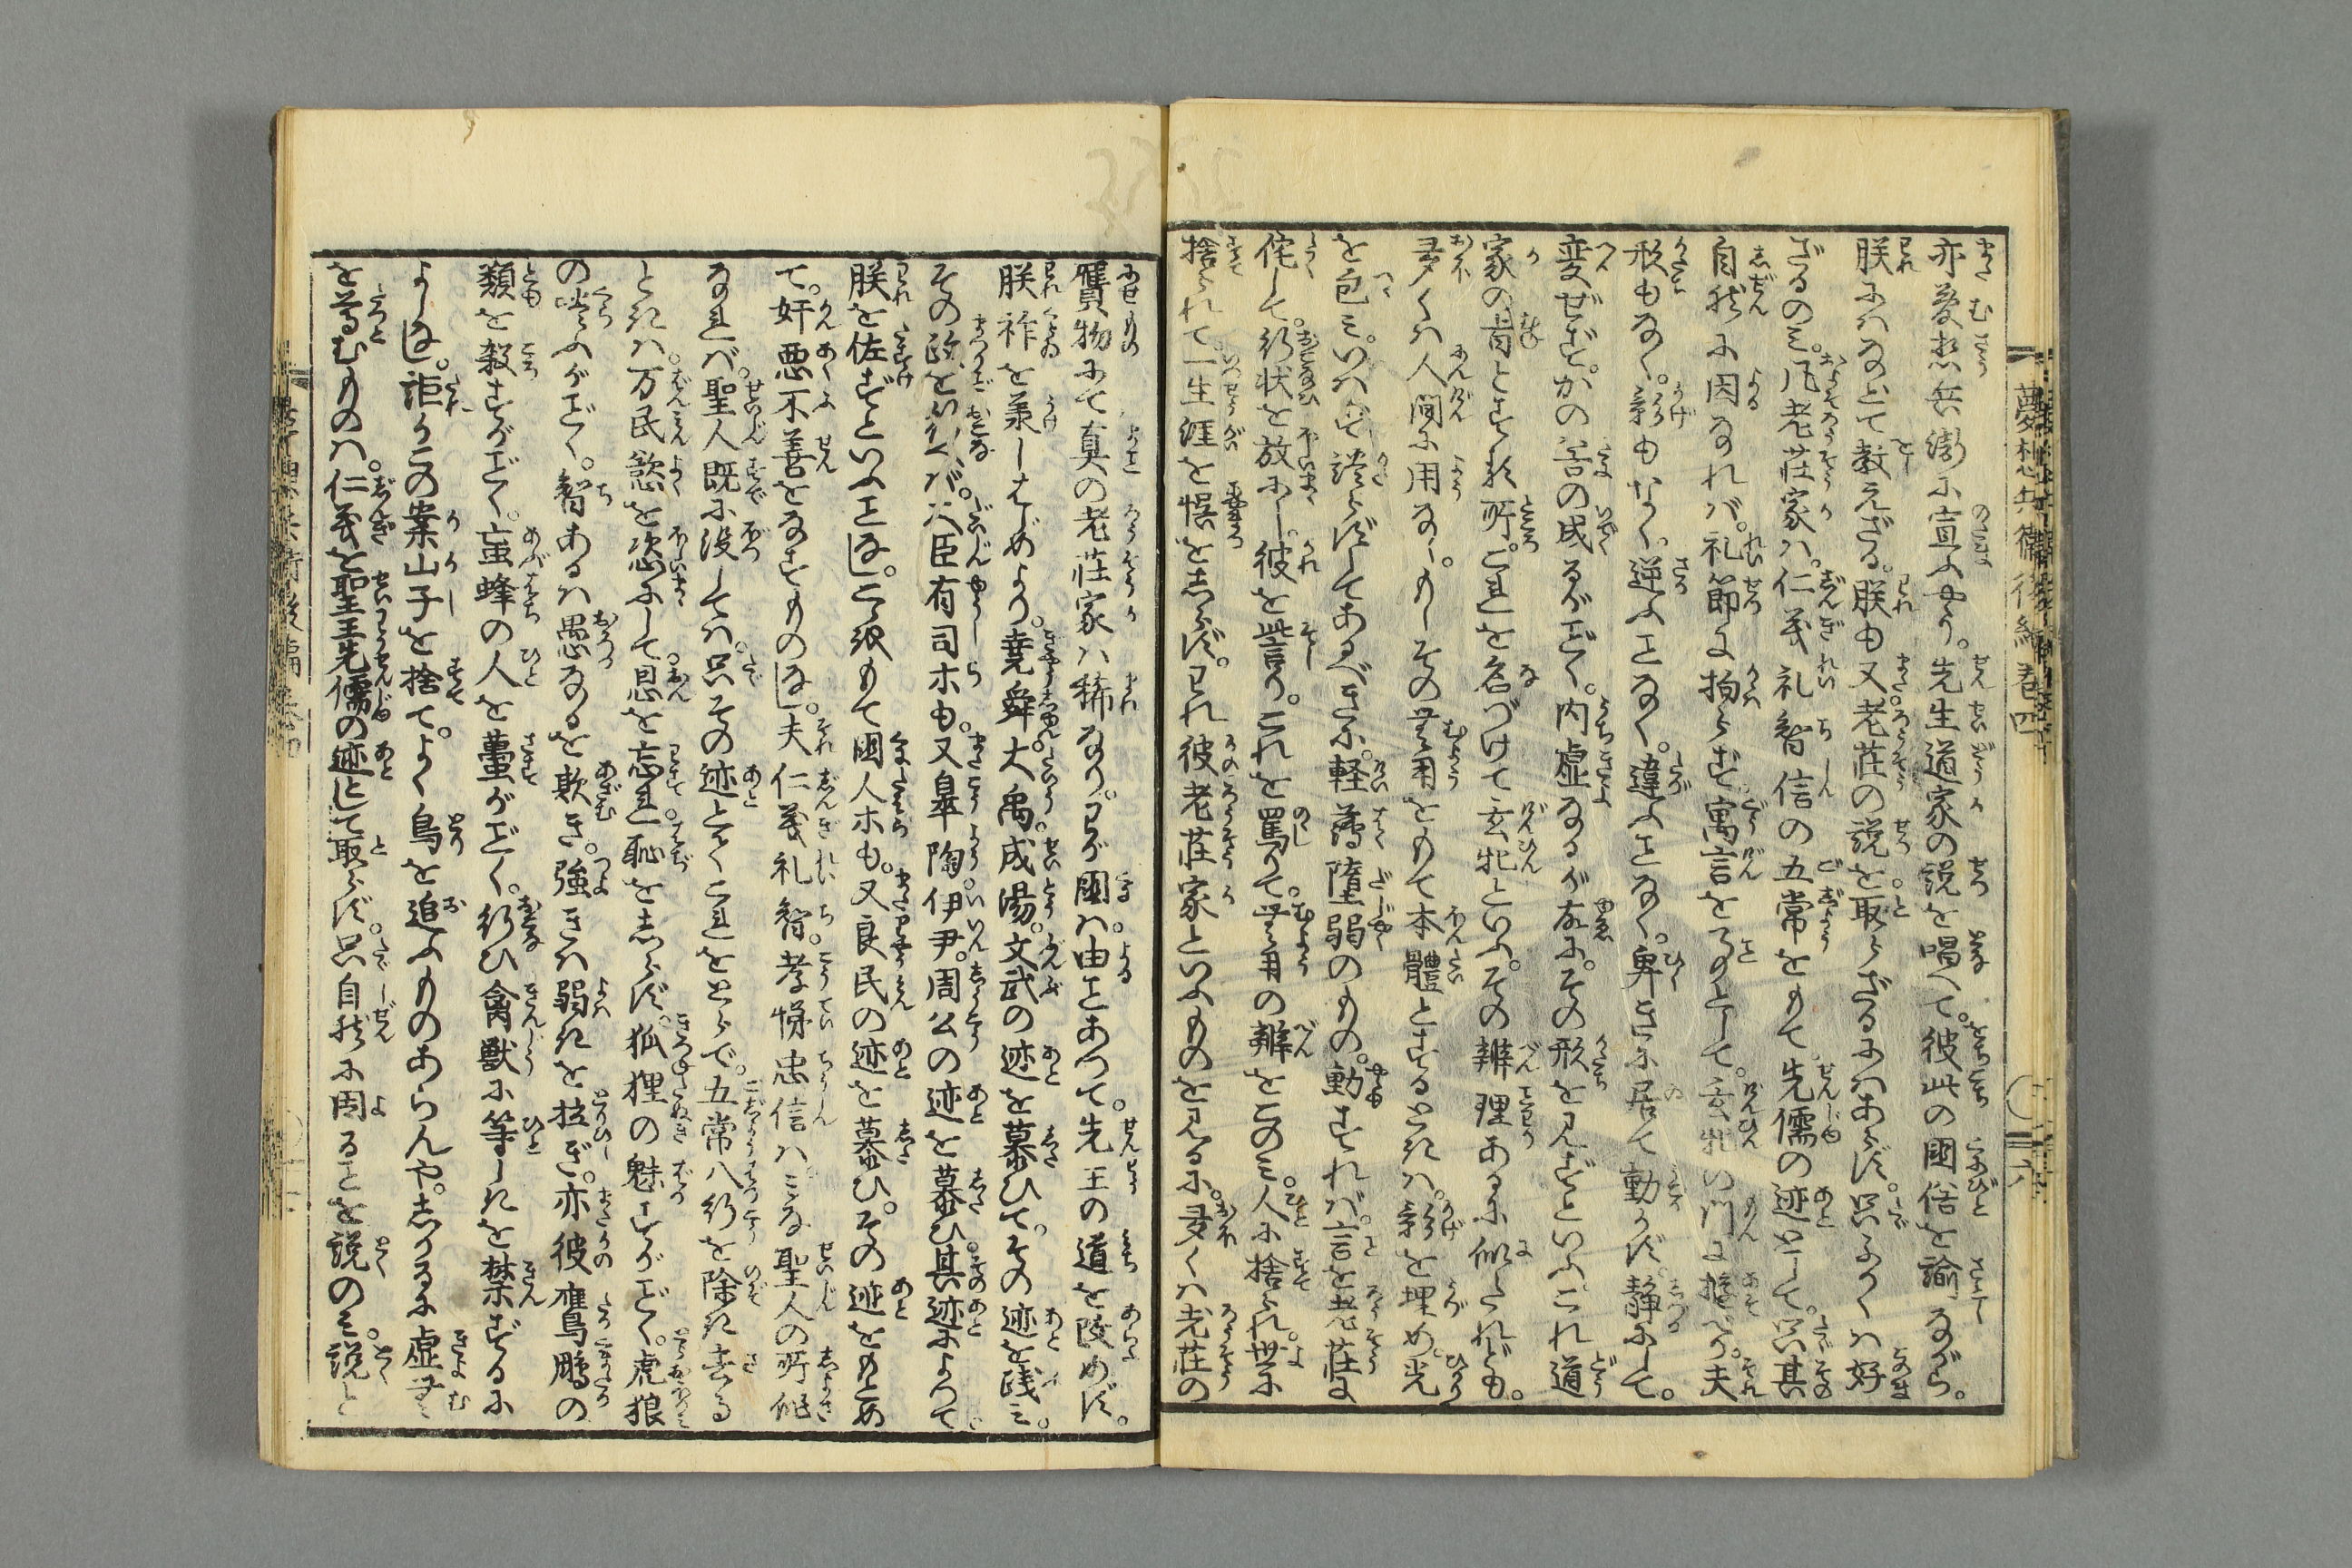 亦夢想兵衛に宣ふやう。先生道家の説を唱へて。彼此の國俗を諭ながら。
朕にハなどて教えざる。朕も又老莊の説を取らざるにハあらず。只ふかくハ好
ざるのミ。凡老莊家ハ。仁義礼智信の五常をもて。先儒の迹として。只其
自然に因なれバ。礼節に拘らず寓言をこととして。玄牝の門に遊べり。夫
形もなく。影もなく。逆ふことなく。違ふことなく。卑きに居て動かず。静にして。
変ぜず。かの谷の成るがごとく。内虚なるが故に。その形を見ずといふ。これ道
家の旨とする所。これを名づけて玄牝といふ。その辨理あるに似たれども。
多くハ人間に用なし。もしその無用をもて本體とするときハ。影を埋め。光
を包ミ。いはず語らずしてあるべきに。軽薄隋弱のもの。動すれバ。言を老莊に
侘して。行状を放にし。彼を訾り。これを罵りて。無用の辨をこのミ。人に捨られ世に
捨られて。一生涯を愰をしらず。われ彼老莊家といふものを見るに。多くハ老莊の
贋物にて真の老莊家ハ稀なり。わが國ハ由ことあつて。先王の道を改めず。
朕祚を義しはじめより。堯舜大禹成湯。文武の迹を慕ひて。その迹を踐ミ。
その政を行へバ。大臣有司ホも。又皐陶伊尹。周公の迹を慕ひ。其迹によつて
朕を佐ずといふことなし。こゝをもて國人ホも。又良民の迹を慕ひ。その迹をもとめ
て。奸悪不善をなすものなし。夫仁義礼智。孝悌忠信ハ。ミな聖人の所作
なれバ。聖人既に没してハ。只その迹とてこれをとらで。五常八行を除き去る
ときハ。万民慾を恣にして。恩を忘れ恥をしらず。狐狸の魅すがごとく。虎狼
の啖ふがごとく。智あるハ愚なるを欺き。強きハ弱きを拉ぎ。亦彼鷹鵰の
類を殺すがごとく。虻蜂の人を蠆がごとく。行ひ禽獣に等しきを禁ずるに
よしなし。誰かこの案山子を捨て。よく鳥を追ふものあらんや。しかるに虚無
を尊むものハ。仁義を聖王先儒の迹として取らず。只自然に因ることを説のミ。説と
夢想兵衛後編巻四